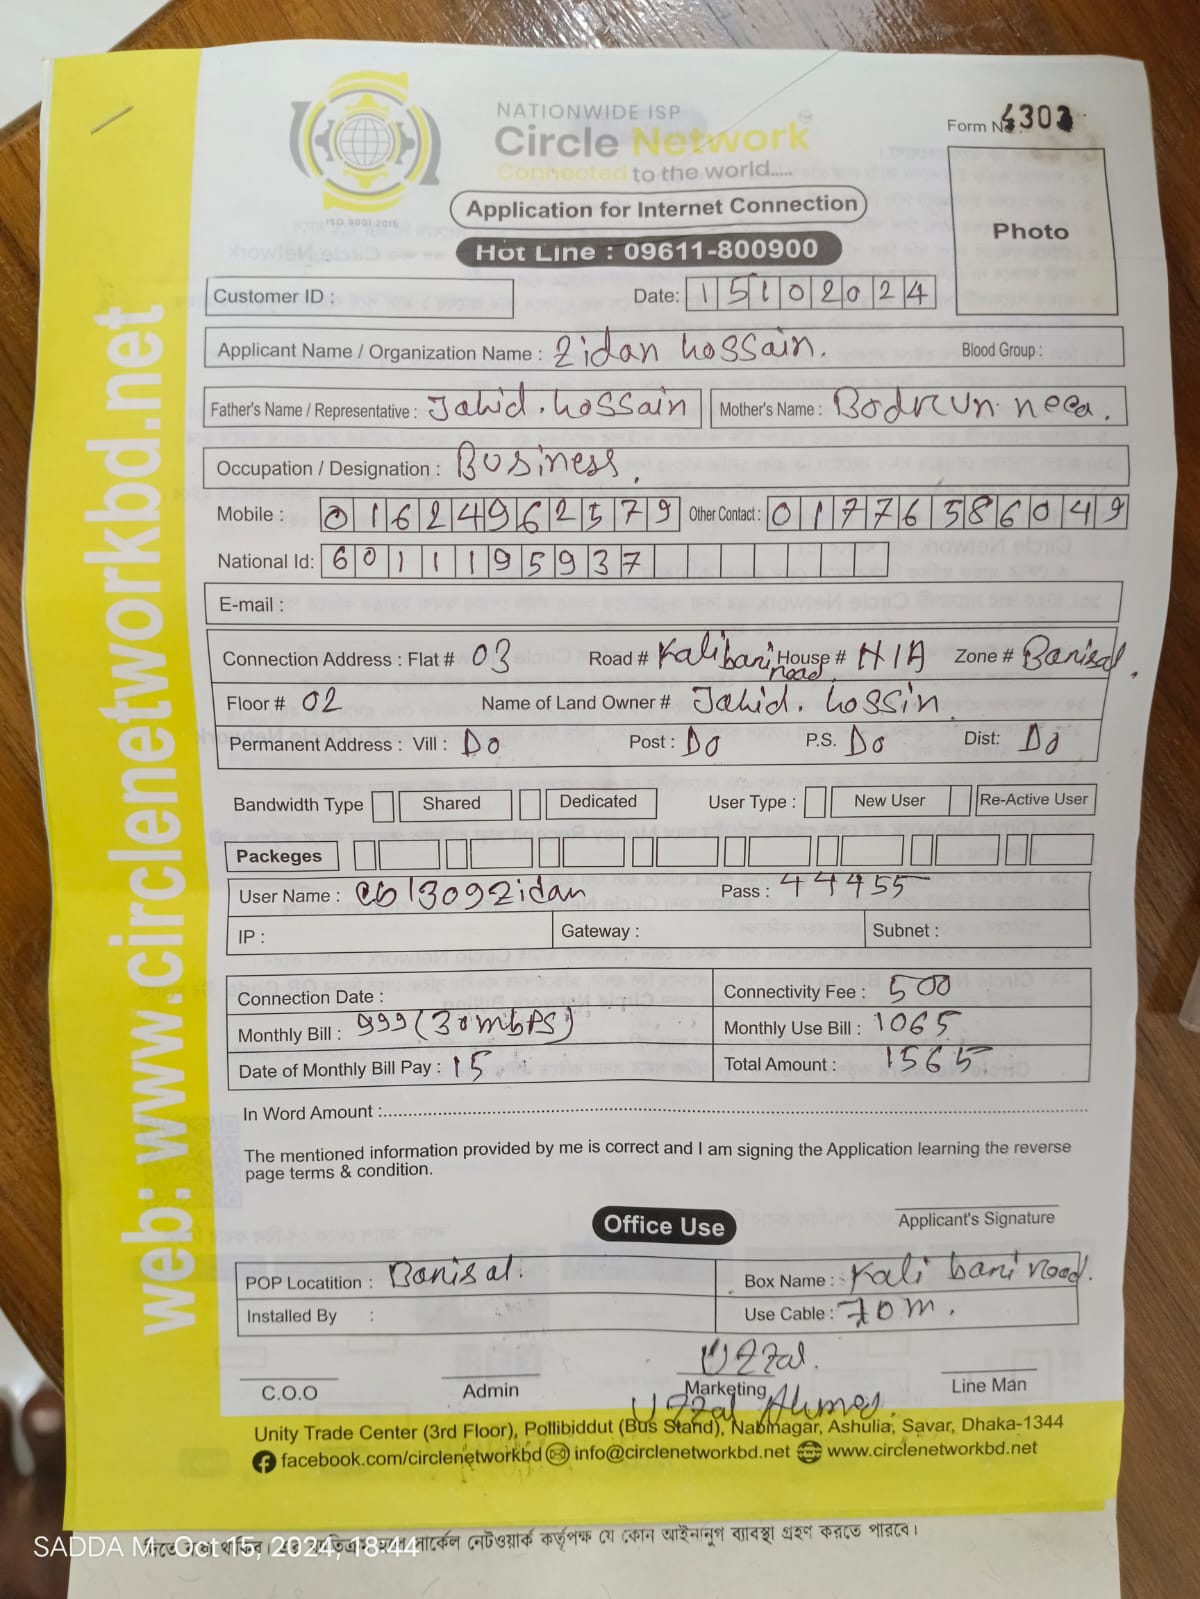 NATIONWIDE ISP
Circle Network
Connected to the world.....
ISO 9001 2015
Form No. 4302
Photo
Application for Internet Connection
Hot Line : 09611-800900
Customer ID : Date: 15102024
Applicant Name / Organization Name : Zidan hossain. Blood Group :
Father's Name / Representative : Jahid. hossain Mother's Name : Bodrun neea.
Occupation / Designation : Business.
Mobile : 01624962579 Other Contact : 01776586049
National Id: 6011195937
E-mail :
Connection Address : Flat # 03 Road # Kalibari road House # N/A Zone # Barisal,
Floor # 02 Name of Land Owner # Jahid. hossin.
Permanent Address : Vill : Do Post : Do P.S. Do Dist: Do
Bandwidth Type Shared Dedicated User Type : New User Re-Active User
Packeges
User Name : cb1309zidan Pass : 44455
IP : Gateway : Subnet :
Connection Date : Connectivity Fee : 500
Monthly Bill : 999 (30mbps) Monthly Use Bill : 1065
Date of Monthly Bill Pay : 15 Total Amount : 1565
In Word Amount :
The mentioned information provided by me is correct and I am signing the Application learning the reverse
page terms & condition.
Applicant's Signature
Office Use
POP Locatition : Barisal. Box Name : Kali bari road.
Installed By : Use Cable : 70m.
Uzzal.
C.O.O Admin Marketing Line Man
Uzzal Ahmed.
Unity Trade Center (3rd Floor), Pollibiddut (Bus Stand), Nabinagar, Ashulia, Savar, Dhaka-1344
facebook.com/circlenetworkbd info@circlenetworkbd.net www.circlenetworkbd.net
web: www.circlenetworkbd.net
সার্কেল নেটওয়ার্ক কর্তৃপক্ষ যে কোন আইনানুগ ব্যবস্থা গ্রহণ করতে পারবে।
SADDA M Oct 15, 2024, 18:44